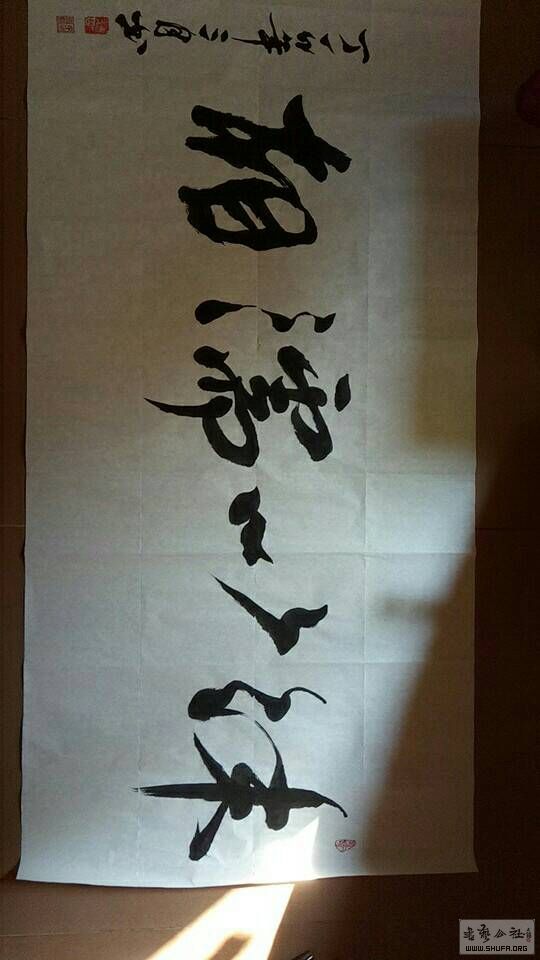 相濡以沫
丁卯年三月书
书艺公社
WWW.SHUFA.ORG